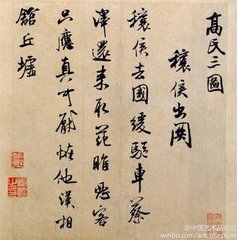 高氏三圖
穰侯出關
穰侯去國緩驅車蔡
澤還来取范雎惡客
只應真可厭惟他漢相
館丘墟
@中国艺术品收藏
weibo.com/artcollection